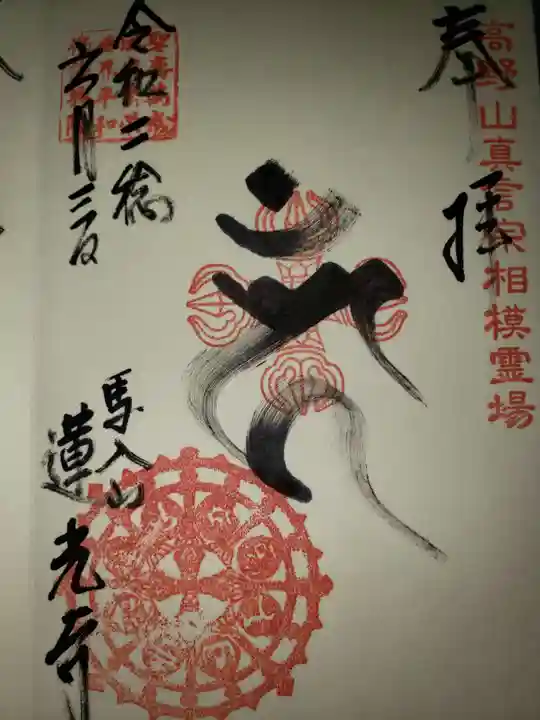 高野山真言宗相模霊場
奉拝
令和二稔
六月三日
馬入山
蓮光寺